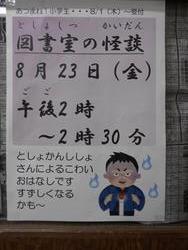 あつまれ!小学生・・・8/1(木)～受付
としょしつ かいだん
図書室の怪談
8月23日(金)
ごご
午後2時
～2時30分
としょかんししょ
さんによるこわい
おはなしです
すずしくなる
かも～